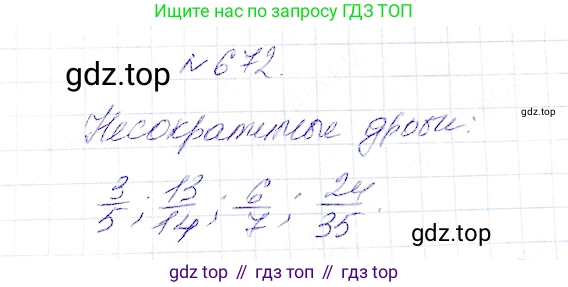 Ищите нас по запросу ГДЗ ТОП
gdz.top
№ 672.
gdz.top
Несократимые дроби:
3/5; 13/14; 6/7; 24/35.
gdz.top
gdz top // гдз топ // гдз top // gdz топ